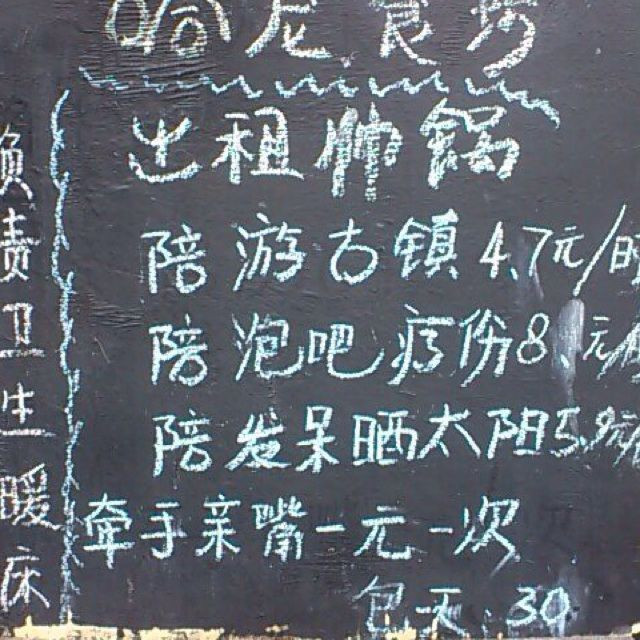 龙食坊
出租帅锅
陪游古镇4.7元/时
陪泡吧疗份8.元
陪发呆晒太阳5.9元
牵手亲嘴一元一次
包天:30
负责卫生暖床